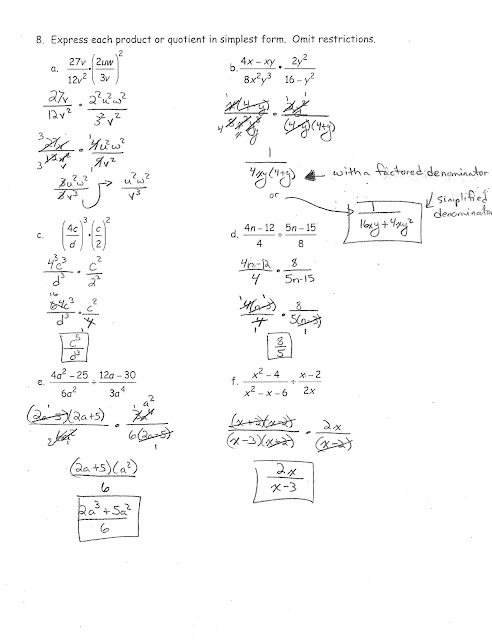 8. Express each product or quotient in simplest form. Omit restrictions.
a. 27v/12v² • (2uw/3v)²
27v/12v² • 2²u²w²/3²v²
3 27v/3 12v² • 1 4u²w²/1 9v²
3u²w²/3v³ → u²w²/v³
b. 4x - xy/8x²y³ • 2y²/16 - y²
x(4-y)/4 8x²y³ • 2y²/(4-y)(4+y)
1/4xy(4+y) ← with a factored denominator
or → 1/16xy + 4xy² ← simplified denominator
c. (4c/d)³ • (c/2)²
4³c³/d³ • c²/2²
16 64c³/d³ • c²/4
c⁵/d³
d. 4n - 12/4 ÷ 5n - 15/8
4n-12/4 • 8/5n-15
1 4(n-3) 1/4 • 8/5(n-3)
8/5
e. 4a² - 25/6a² ÷ 12a - 30/3a⁴
(2a-5)(2a+5)/2 6a² • 1 3a⁴ a²/6(2a-5) 1
(2a+5)(a²)/6
2a³ + 5a²/6
f. x² - 4/x² - x - 6 ÷ x - 2/2x
(x+2)(x-2)/(x-3)(x+2) • 2x/(x-2)
2x/x-3